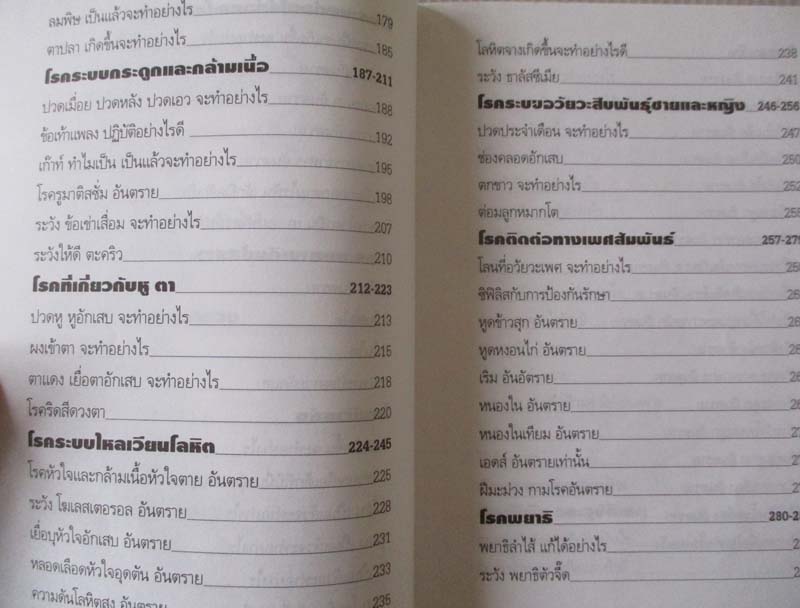 ลมพิษ เป็นแล้วจะทำอย่างไร 179
ตาปลา เกิดขึ้นจะทำอย่างไร 185
โรคระบบกระดูกและกล้ามเนื้อ 187-211
ปวดเมื่อย ปวดหลัง ปวดเอว จะทำอย่างไร 188
ข้อเท้าแพลง ปฏิบัติอย่างไรดี 192
เก๊าท์ ทำไมเป็น เป็นแล้วจะทำอย่างไร 195
โรครูมาติสซั่ม อันตราย 198
ระวัง ข้อเข่าเสื่อม จะทำอย่างไร 207
ระวังให้ดี ตะคริว 210
โรคที่เกี่ยวกับหู ตา 212-223
ปวดหู หูอักเสบ จะทำอย่างไร 213
ผงเข้าตา จะทำอย่างไร 215
ตาแดง เยื่อตาอักเสบ จะทำอย่างไร 218
โรคริดสีดวงตา 220
โรคระบบไหลเวียนโลหิต 224-245
โรคหัวใจและกล้ามเนื้อหัวใจตาย อันตราย 225
ระวัง โฆเลสเตอรอล อันตราย 228
เยื่อบุหัวใจอักเสบ อันตราย 231
หลอดเลือดหัวใจอุดตัน อันตราย 233
ความดันโลหิตสูง อันตราย 235
โลหิตจางเกิดขึ้นจะทำอย่างไรดี 238
ระวัง ธาลัสซีเมีย 241
โรคระบบอวัยวะสืบพันธุ์ชายและหญิง 246-256
ปวดประจำเดือน จะทำอย่างไร 247
ช่องคลอดอักเสบ 250
ตกขาว จะทำอย่างไร 252
ต่อมลูกหมากโต 255
โรคติดต่อทางเพศสัมพันธ์ 257-279
โลนที่อวัยวะเพศ จะทำอย่างไร
ซิฟิลิสกับการป้องกันรักษา
หูดข้าวสุก อันตราย
หูดหงอนไก่ อันตราย
เริม อันอัตราย
หนองใน อันตราย
หนองในเทียม อันตราย
เอดส์ อันตรายเท่านั้น
ฝีมะม่วง กามโรคอันตราย
โรคพยาธิ
พยาธิลำไส้ แก้ได้อย่างไร
ระวัง พยาธิตัวจี๊ด